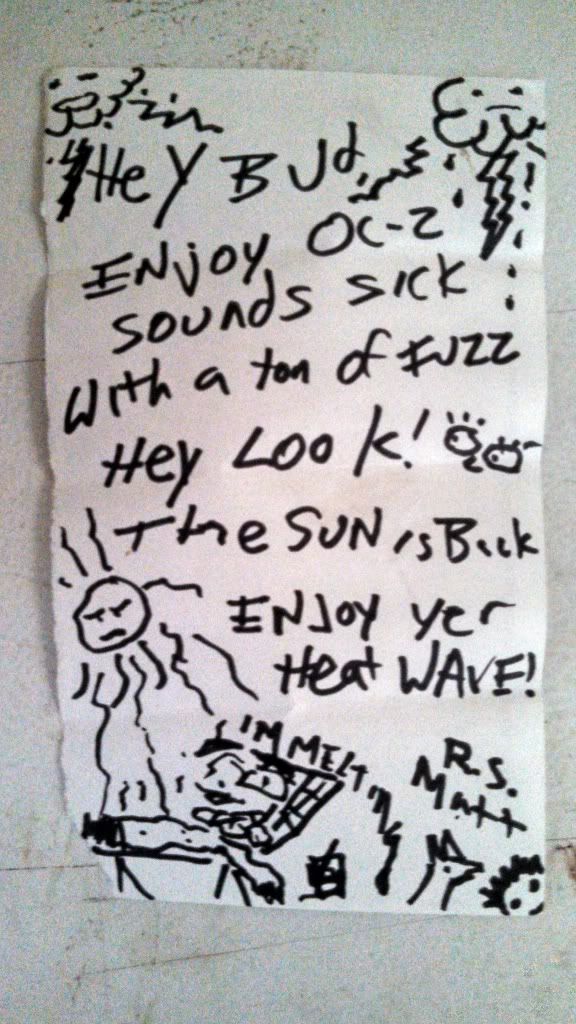 Hey Bud,
ENjoy OC-2
sounds sick
With a ton of FUZZ
Hey LOOK!
The SUN is Back
ENJOY yer
Heat WAVE!
I'M MELTIN
R.S.
Matt